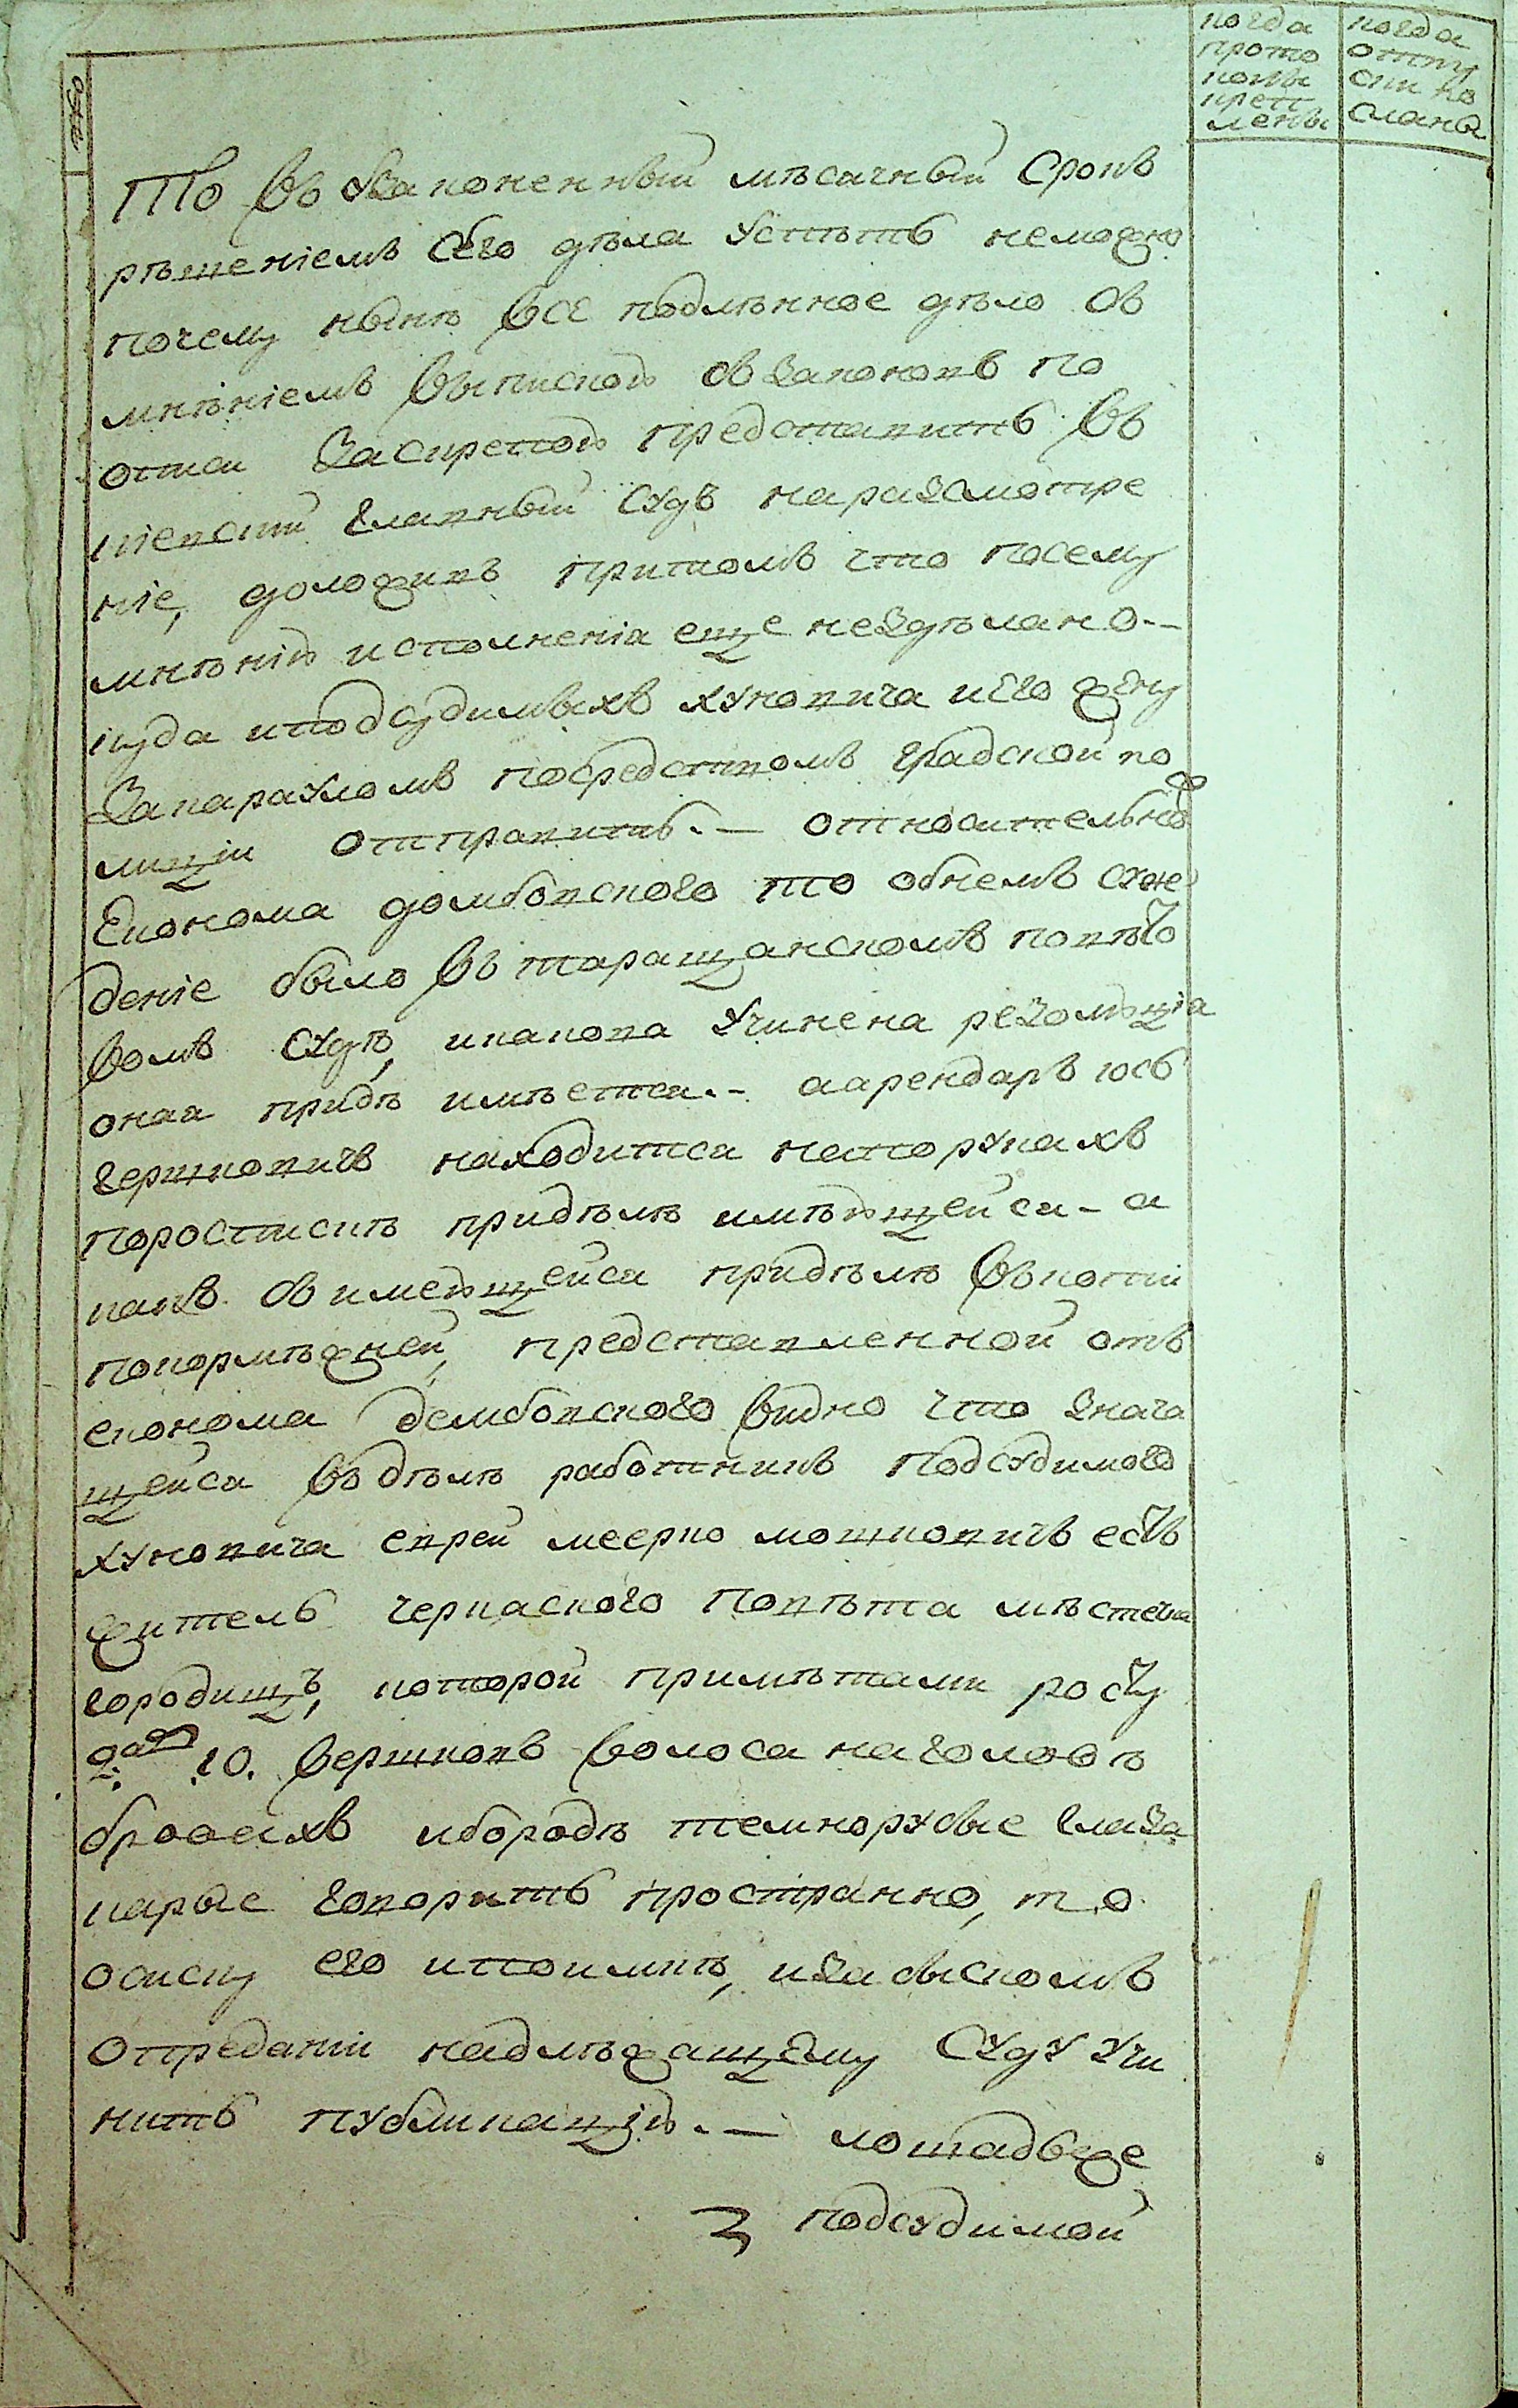 когда
прото
колы
креп
лены
когда
отпу
ски по
сланы
То въ узаконенный мѣсячный срокъ
рѣшеніемъ сего дѣла успѣть неможно
почему нынѣ все подлѣнное дѣло съ
мнѣніемъ выпискою съ законовъ по
отти засирепою представить въ
кіевскій главный судъ наразсмотре
ніе, доложивъ притомъ что посему
мнѣнію исполненія еще нездѣлано.—
куда иподсудимыхъ хуновича иего жену
закарауломъ посредствомъ градской по
лиціи отправить.— относительно
економа домбовского то обнемъ сужде
деніе было въ таращанскомъ повѣто
вомъ судѣ, икакова учинена резолюція
оная придѣ имѣется.— аарендарь юсь
гершковичъ находится наторукахъ
поросписке придѣлѣ имѣющейся – а
какъ съ имеющейся придѣлѣ въкопіи
покормѣжней, представленной отъ
економа дембовского видно что знача
щейся въ дѣлѣ работникъ подсудимого
хуновича еврей меерко мошковичъ есть
житель черкаского повѣта мѣстечка
городищъ, которой примѣтами росту
2: ар: 10. вершковъ волоса наголовѣ
бровяхъ ибородѣ темнорусые глаза
карые говорить пространно, то
осиску его ипоимкѣ, иза сыскомъ
отредачи надлѣжащему суду учи
нить публикацію.— лошадьже
подсудимой